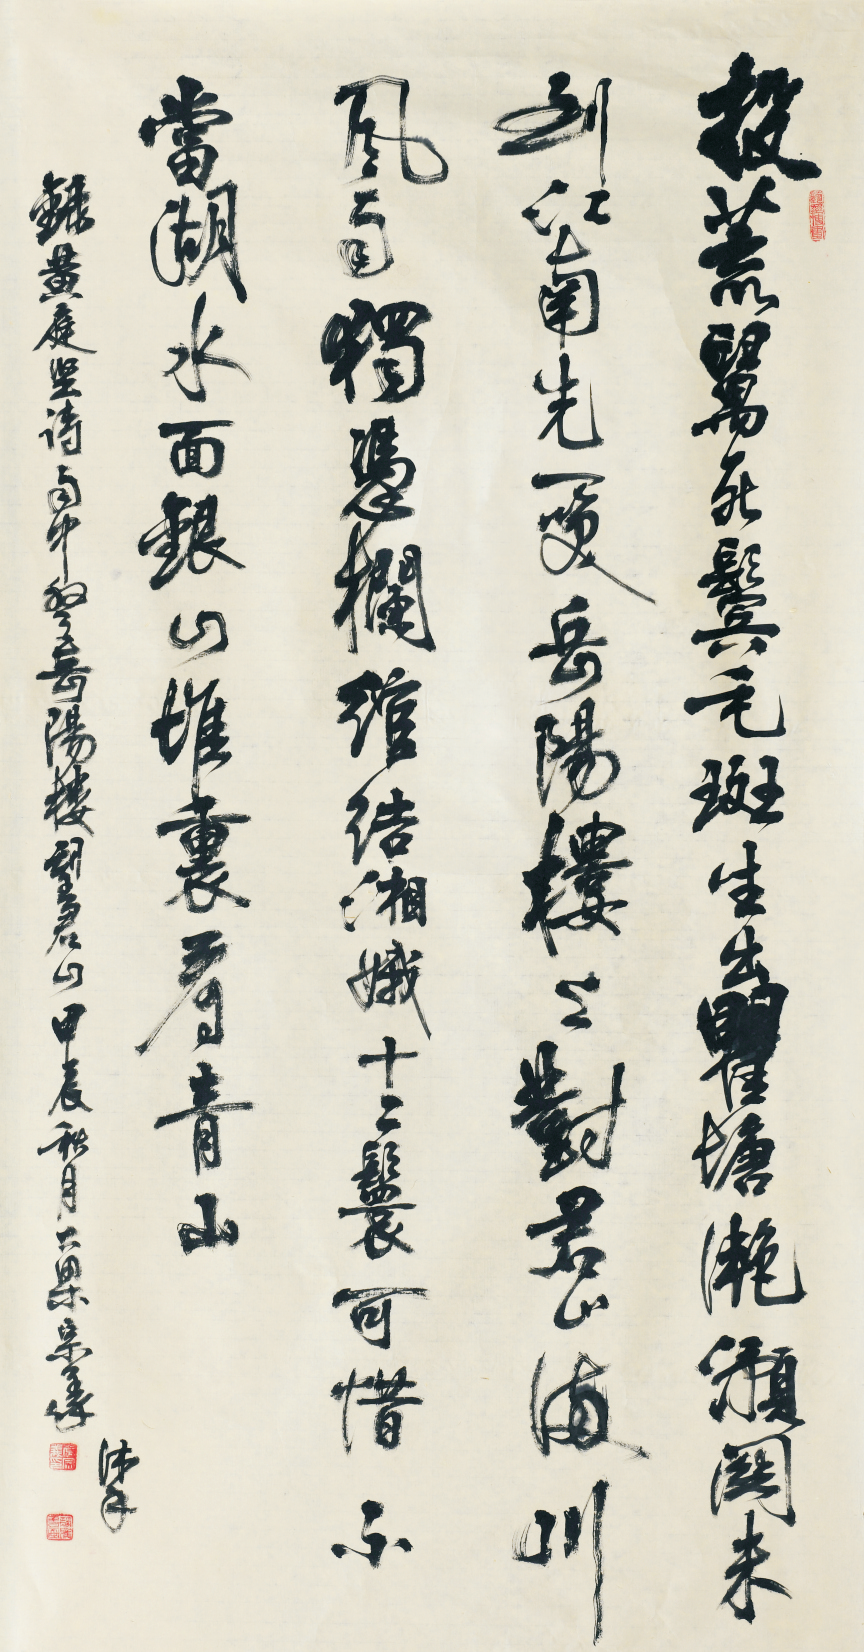 投荒萬死鬢毛斑生出瞿塘灩澦關未
到江南先一笑岳陽樓上對君山滿川
風雨獨憑欄綰結湘娥十二鬟可惜不
當湖水面銀山堆裏看青山
錄黃庭坚诗雨中登岳陽樓望君山甲辰秋月
沐手